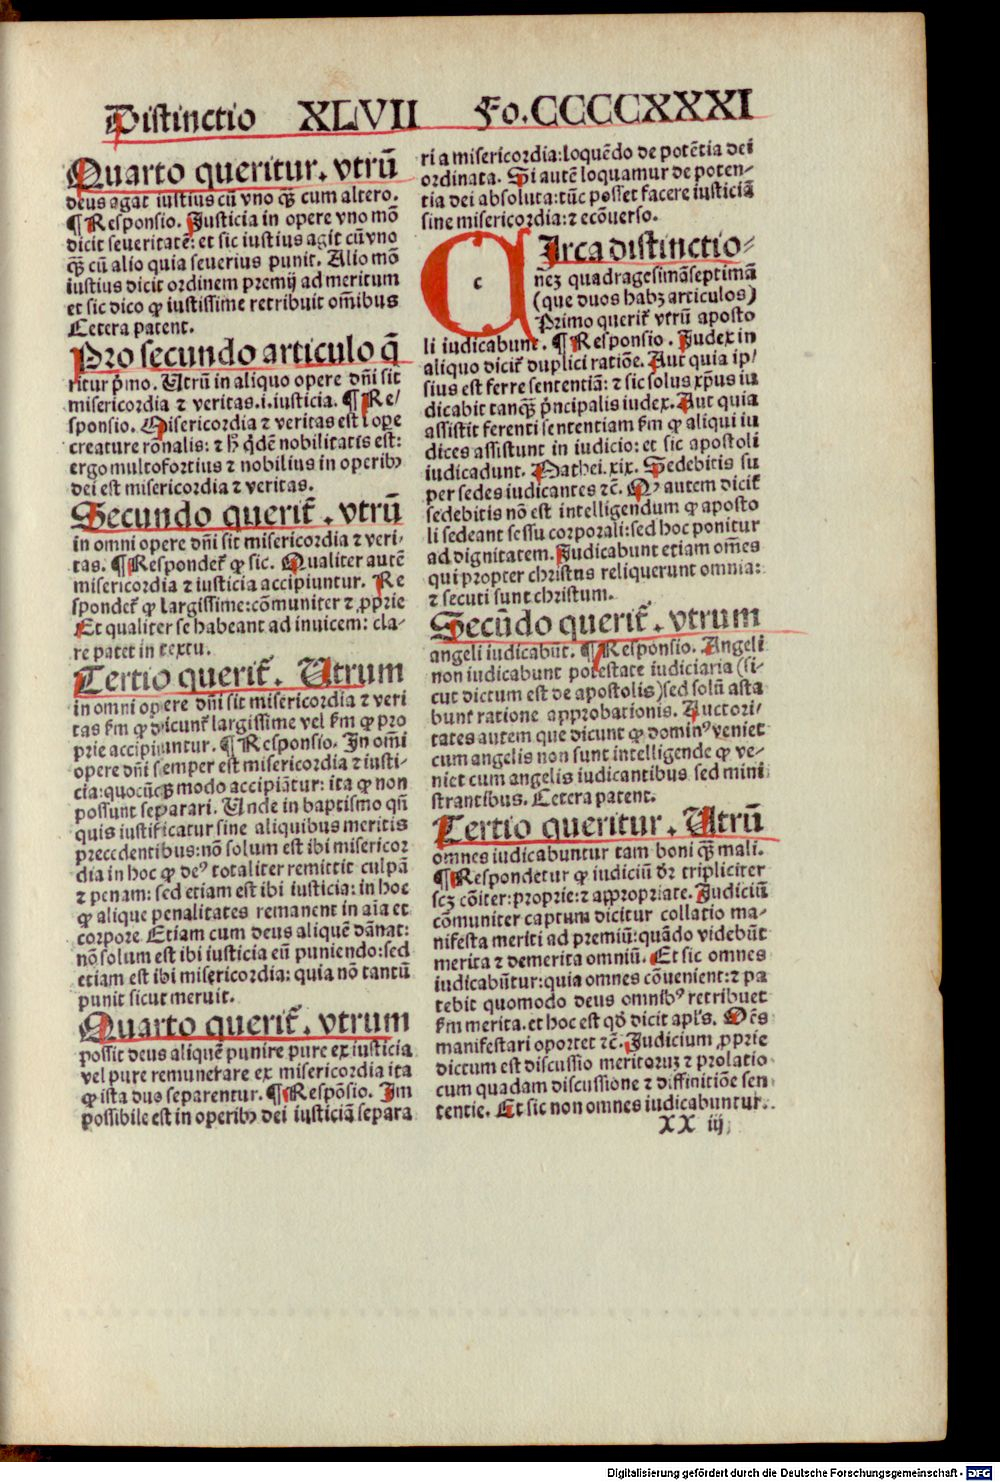 Distinctio XLVII Fo.CCCCXXXI
Quarto queritur. vtrū
deus agat iustius cū vno qȝ cum altero.
¶ Responsio. Justicia in opere vno mō
dicit seueritatē: et sic iustius agit cū vno
qȝ cū alio quia seuerius punit. Alio mō
iustius dicit ordinem premij ad meritum
et sic dico ꝙ iustissime retribuit oīnibus
Cetera patent.
Pro secundo articulo q̄
ritur p̄mo. Vtrū in aliquo opere dn̄i sit
misericordia ⁊ veritas.i.iusticia. ¶ Re/
sponsio. Misericordia ⁊ veritas est ī ope
creature rōnalis: ⁊ ħ q̇dē nobilitatis est:
ergo multofortius ⁊ nobilius in operibꝰ
dei est misericordia ⁊ veritas.
Secundo querit̄. vtrū
in omni opere dn̄i sit misericordia ⁊ veri-
tas. ¶ Respondet̄ ꝙ sic. Qualiter autē
misericordia ⁊ iusticia accipiuntur. Re
spondet̄ ꝙ largissime: cōmuniter ⁊ ꝓprie
Et qualiter se habeant ad inuicem: cla-
re patet in textu.
Tertio querit̄. Vtrum
in omni opere dn̄i sit misericordia ⁊ veri
tas ẜm ꝙ dicunt̄ largissime vel ẜm ꝙ pro
prie accipiuntur. ¶ Responsio. In om̄i
opere dn̄i semper est misericordia ⁊ iusti-
cia: quocūqȝ modo accipiāntur: ita ꝙ non
possunt separari. Unde in baptismo qn̄
quis iustificatur sine aliquibus meritis
precedentibus: nō solum est ibi misericor
dia in hoc ꝙ deꝰ totaliter remittit culpā
⁊ penam: sed etiam est ibi iusticia: in hoc
ꝙ alique penalitates remanent in aīa et
corpore Etiam cum deus aliquē dānat:
nō solum est ibi iusticia eū puniendo: sed
etiam est ibi misericordia: quia nō tantū
punit sicut meruit.
Quarto querit̄. vtrum
possit deus aliquē punire pure ex iusticia
vel pure remunerare ex misericordia ita
ꝙ ista duo separentur. ¶ Respōsio. Im
possibile est in operibꝰ dei iusticiā separa
ri a misericordia: loquēdo de potētia dei
ordinata. Si autē loquamur de poten-
tia dei absoluta: tūc posset facere iusticiā
sine misericordia: ⁊ ecōuerso.
c
CIrca distinctio-
neȝ quadragesimāseptimā
(que duos habȝ articulos)
Primo querit̄ vtrū aposto
li iudicabunt. ¶ Responsio. Judex in
aliquo dicit̄ duplici ratiōe. Aut quia ip/
sius est ferre sententiā: ⁊ sic solus xp̄us iu
dicabit tanqȝ p̄ncipalis iudex. Aut quia
assistit ferenti sententiam ẜm ꝙ aliqui iu
dices assistunt in iudicio: et sic apostoli
iudicadunt. Mathei.xix. Sedebitis su
per sedes iudicantes ⁊c̄. Qꝭ autem dicit̄
sedebitis nō est intelligendum ꝙ aposto
li sedeant sessu corporali: sed hoc ponitur
ad dignitatem. Judicabunt etiam om̄es
qui propter christus reliquerunt omnia:
⁊ secuti sunt christum.
Secūdo querit̄. vtrum
angeli iudicabūt. ¶ Responsio. Angeli
non iudicabunt potestate iudiciaria (si-
cut dictum est de apostolis) sed solū asta
bunt ratione approbationis. Auctori-
tates autem que dicunt ꝙ dominꝰ veniet
cum angelis non sunt intelligende ꝙ ve-
niet cum angelis iudicantibus sed mini
strantibus. Cetera patent.
Tertio queritur. Utrū
omnes iudicabuntur tam boni qȝ mali.
¶ Respondetur ꝙ iudiciū dr̄ tripliciter
scȝ cōiter: proprie: ⁊ appropriate. Judiciū
cōmuniter captum dicitur collatio ma-
nifesta meriti ad premiū: quādo videbūt
merita ⁊ demerita omniū. Et sic omnes
iudicabūtur: quia omnes cōuenient: ⁊ pa
tebit quomodo deus omnibꝰ retribuet
ẜm merita. et hoc est qd̄ dicit apl's. Om̄s
manifestari oportet ⁊c̄. Judicium ꝓprie
dictum est discussio meritoruȝ ⁊ prolatio
cum quadam discussione ⁊ diffinitiōe sen
tentie. Et sic non omnes iudicabuntur.
XX iij
Digitalisierung gefördert durch die Deutsche Forschungsgemeinschaft - DFG